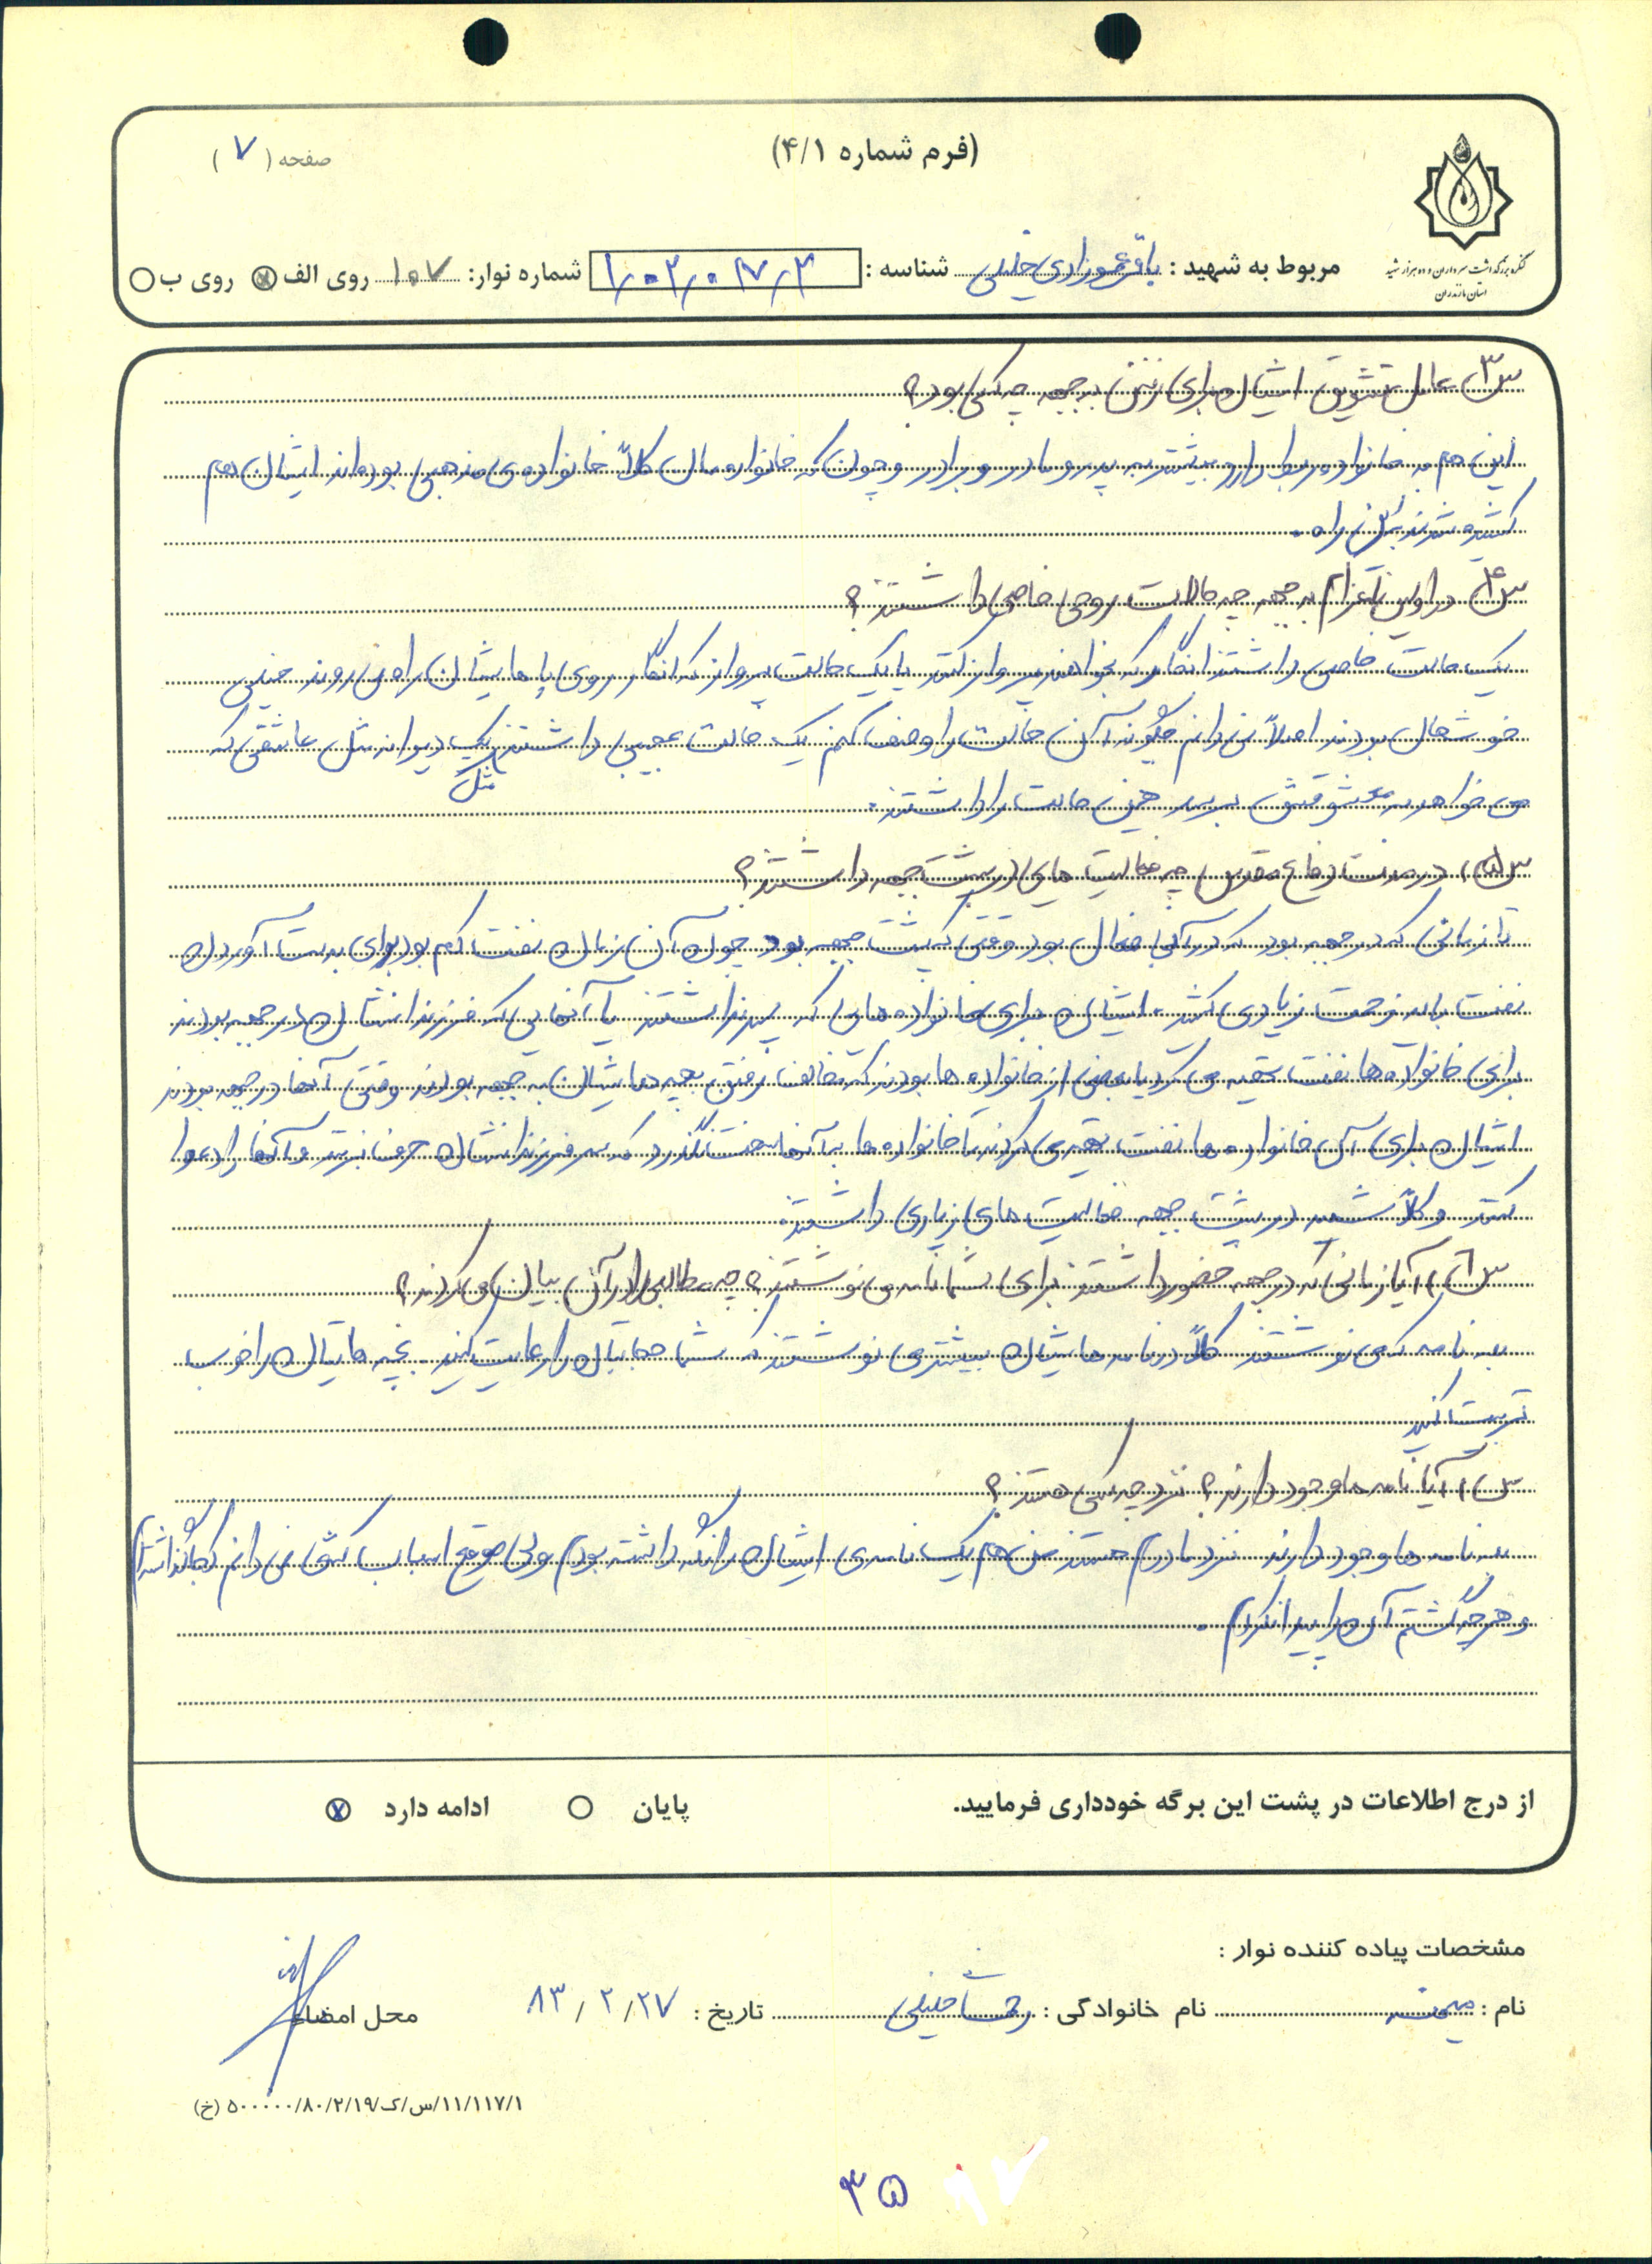 (فرم شماره ۴/۱)
صفحه ( ۷ )
کنگره بزرگداشت سرداران و ده هزار شهید
استان مازندران
مربوط به شهید : باقر عموزادی خلیلی شناسه : شماره نوار: ۱۰۷ روی الف روی ب
س۳) عامل تشویق ایشان برای رفتن به جبهه چه کسی بود؟
این هم به خانواده ربط دارد بیشتر به پدر و مادر و برادر و چون که خانواده مان کلاً خانواده ی مذهبی بوده اند ایشان هم
کشیده شدند به این راه.
س۴) در اولین اعزام به جبهه چه حالات روحی خاصی داشتند؟
یک حالت خاصی داشتند انگار که بخواهند پرواز کنند با یک حالت پرواز که انگار روی پاهایشان راه می روند خیلی
خوشحال بودند اصلاً نمی دانم چگونه آن حالت را وصف کنم یک حالت عجیبی داشتند مثل یک دیوانه مثل عاشقی که
می خواهد به معشوقش برسد همین حالت را داشتند.
س۵) در مدت دفاع مقدس چه فعالیت های در پشت جبهه داشتند؟
تا زمانی که در جبهه بود که در آنجا فعال بود وقتی که پشت جبهه بود چون آن زمان نفت کم بود برای بدست آوردن
نفت باید زحمت زیادی کشید، ایشان برای خانواده هایی که پدر نداشتند یا آنهایی که فرزندانشان در جبهه بودند
برای خانواده ها نفت تهیه می کرد یا بعضی از خانواده ها بودند که مخالف رفتن بچه هایشان به جبهه بودند وقتی آنها در جبهه بودند
ایشان برای آن خانواده ها نفت تهیه می کردند تا خانواده ها به آنها سخت نگذرد که سر فرزندانشان حرف نزنند و آنها را دعوا
نکنند و کلاً شهید در پشت جبهه فعالیت های زیادی داشتند.
س۶) آیا زمانی که در جبهه حضور داشتند برای شما نامه می نوشتند؟ چه مطالبی را در آن بیان می کردند؟
بله نامه که می نوشتند کلاً در نامه هایشان بیشتر می نوشتند که شما حجابتان را رعایت کنید. بچه هایتان را خوب
تربیت کنید
س) آیا نامه ها وجود دارند؟ نزد چه کسی هستند؟
بله نامه ها وجود دارند نزد مادرم هستند من هم یک نامه ی ایشان را نگه داشته بودم ولی موقع اسباب کشی نمی دانم کجا گذاشتم
و هر چه گشتم آن را پیدا نکردم.
از درج اطلاعات در پشت این برگه خودداری فرمایید.
پایان ادامه دارد
مشخصات پیاده کننده نوار :
نام : میمنت نام خانوادگی : خلیلی تاریخ : ۸۳/۲/۲۷ محل امضاء
۱۱/۱۱۷/۱/س/ک/۸۰/۲/۱۹/۵۰۰۰۰۰ (خ)
۳۵